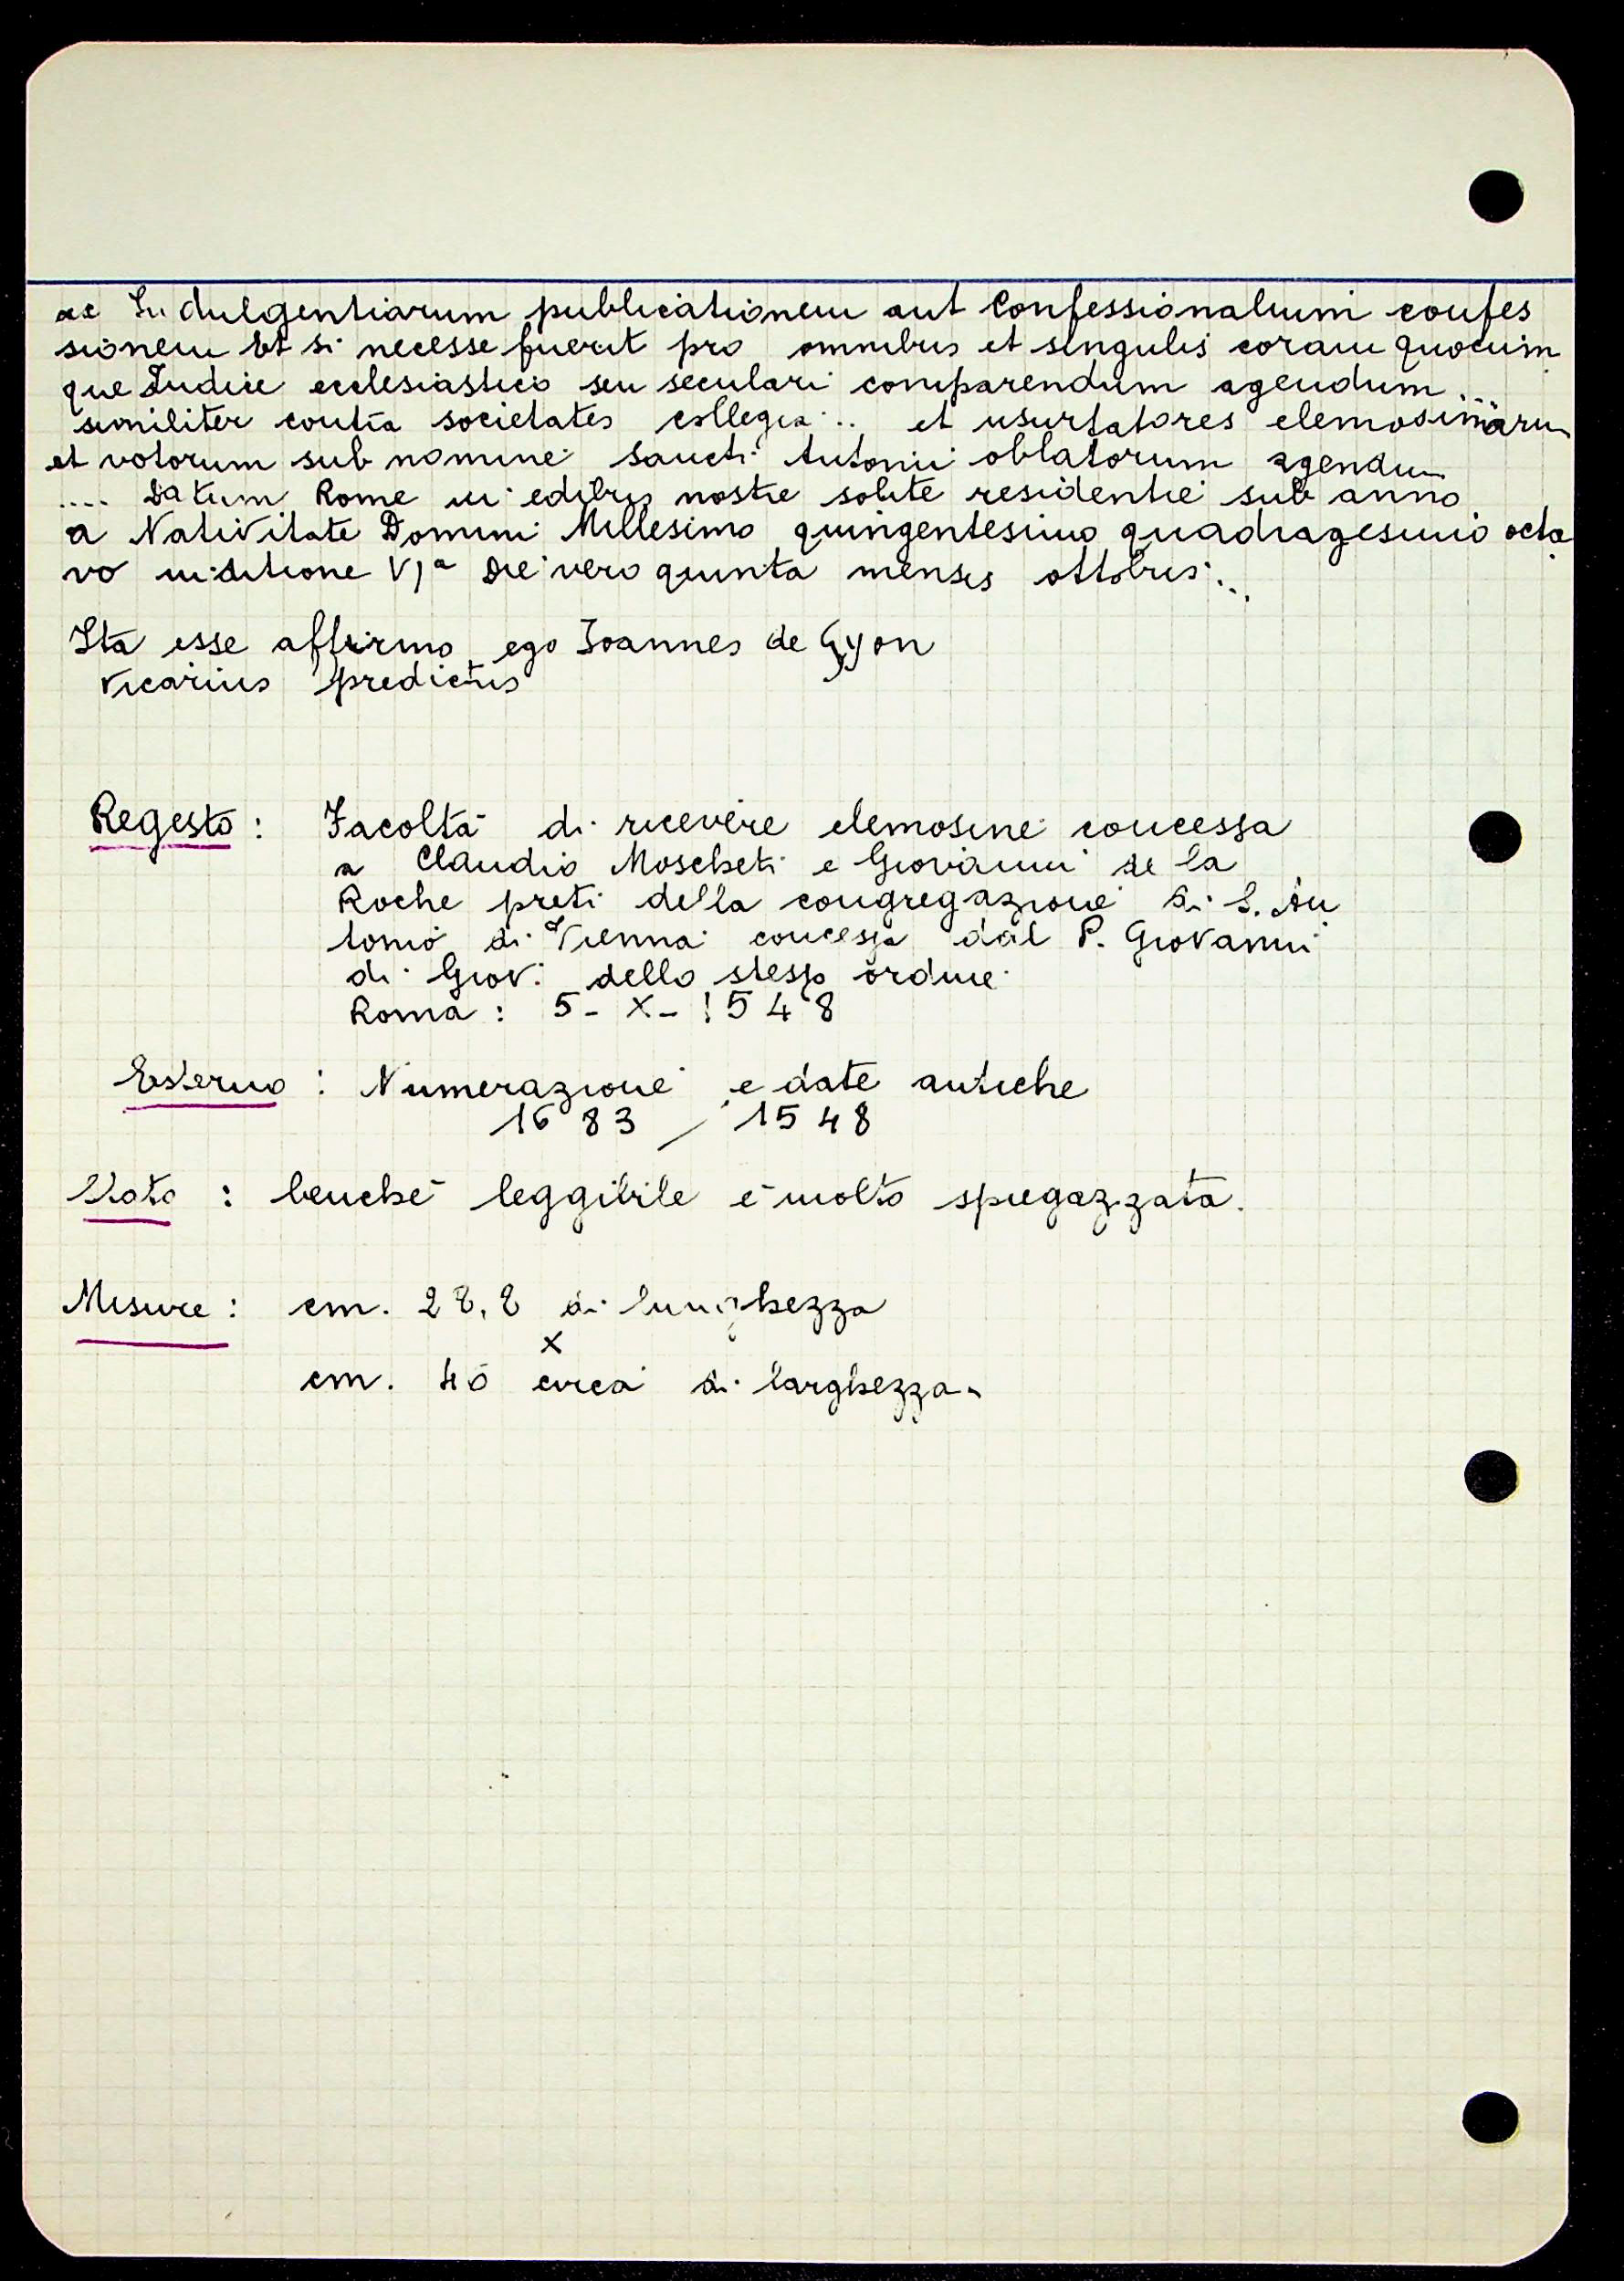 ac Indulgentiarum publicationem aut Confessionalium confes
sionem Et si necesse fuerit pro omnibus et singulis coram quocum
que Iudice ecclesiastico seu seculari comparendum agendum...
similiter contra societates collegia .. et usurtatores elemosinarum
et votorum sub nomine Sancti Antonii oblatorum agendum
.... Datum Rome in edibus nostre solite residentie sub anno
a Nativitate Domini Millesimo quingentesimo quadragesimo octa
vo inditione VIª Die vero quinta mensis ottobris...
Ita esse affirmo ego Ioannes de Gyon
Vicarius predictus
Regesto : Facoltà di ricevere elemosine concessa
a Claudio Moscheti e Giovanni de la
Roche preti della congregazione di S. An
tonio di Vienna concessa dal P. Giovanni
di Giov. dello stesso ordine
Roma : 5 - X - 1548
Esterno : Numerazione e date antiche
1683 / 1548
Stato : benché leggibile è molto spiegazzata.
Misure : cm. 28,8 di lunghezza
x
cm. 40 circa di larghezza.